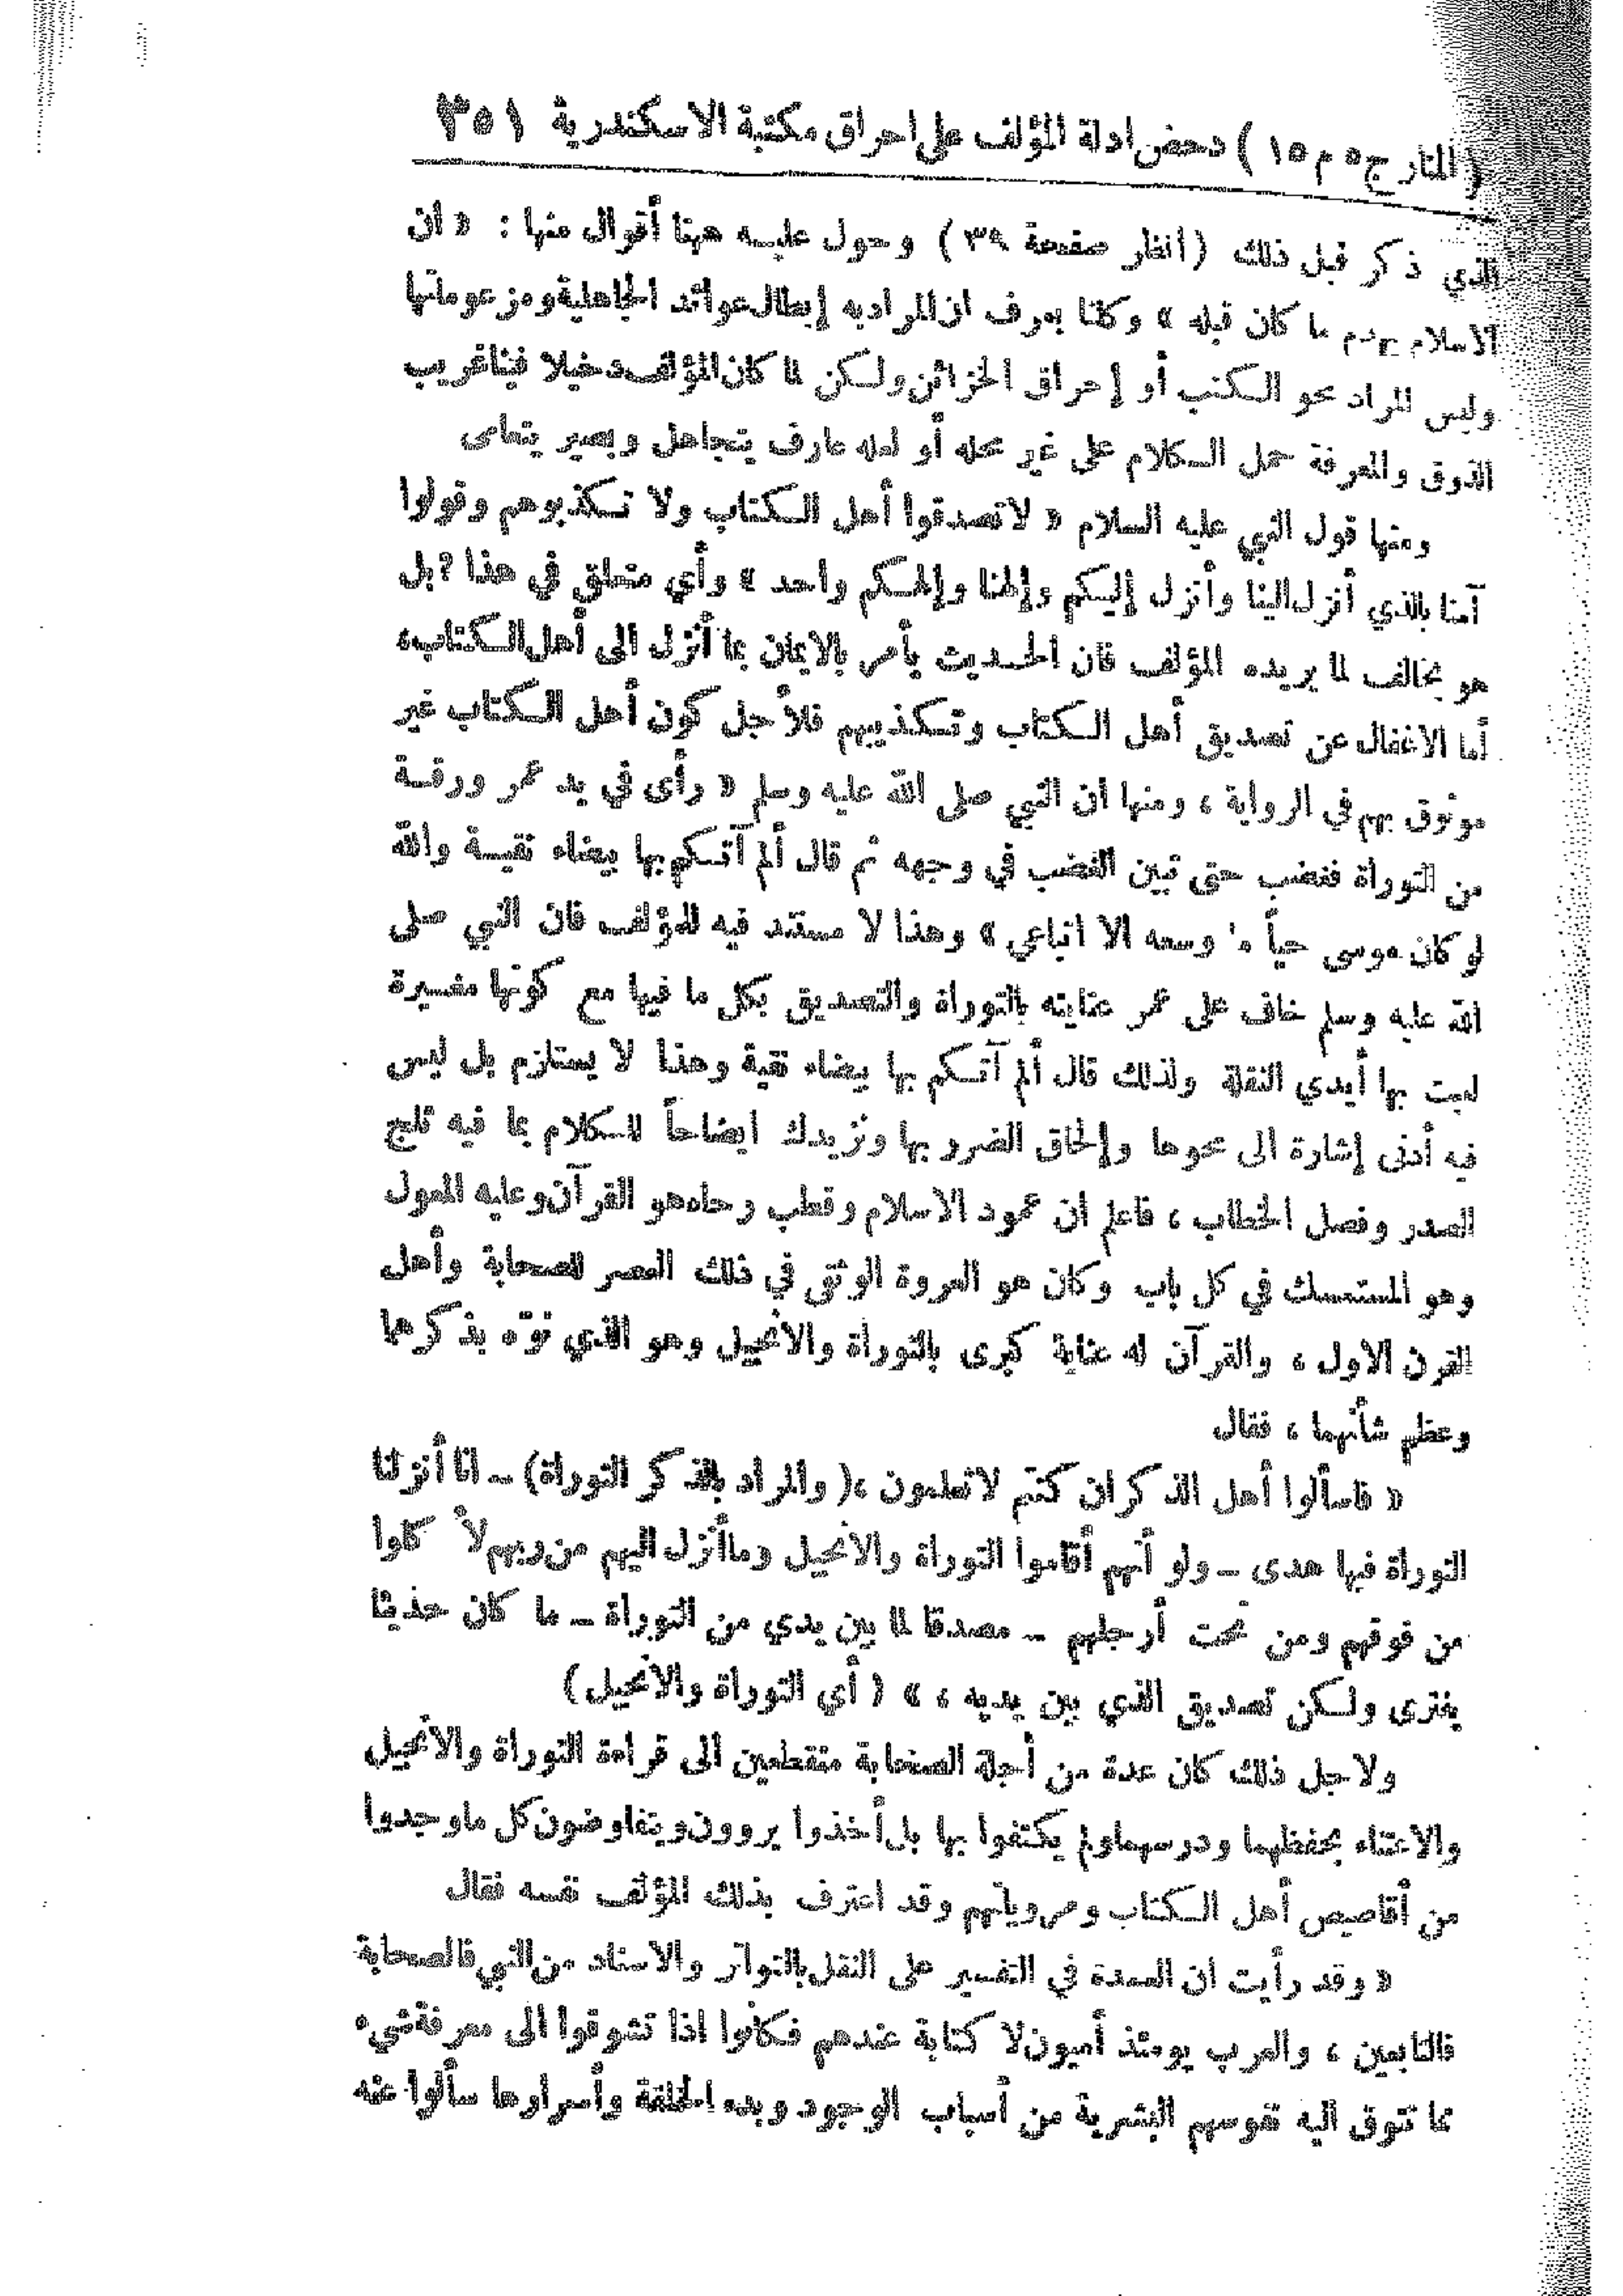 (المنار ج ٥ م ١٥) دحض ادلة المؤلف على احراق مكتبة الاسكندرية ٣٥١
الذي ذكر قبل ذلك (انظر صفحة ٣٩) وحول عليه ههنا أقوال منها : « ان
الاسلام يهدم ما كان قبله » وكلنا يعرف ان المراد به إبطال عوائد الجاهلية ومزعوماتها
وليس المراد محو الكتب أو إحراق الخزائن ولكن لما كان المؤلف دخيلا فينا غريب
الذوق والمعرفة حمل الكلام على غير محله أو لعله عارف يتجاهل وبصير يتعامى
ومنها قول النبي عليه السلام « لا تصدقوا أهل الكتاب ولا تكذبوهم وقولوا
آمنا بالذي أنزل الينا وأنزل إليكم وإلهنا وإلهكم واحد » وأي متعلق في هذا ? بل
هو يخالف لما يريده المؤلف فان الحديث يأمر بالايمان بما أنزل الى أهل الكتاب،
أما الاغفال عن تصديق أهل الكتاب وتكذيبهم فلأجل كون أهل الكتاب غير
موثوق بهم في الرواية ، ومنها ان النبي صلى الله عليه وسلم « رأى في يد عمر ورقة
من التوراة فغضب حتى تبين الغضب في وجهه ثم قال ألم آتكم بها بيضاء نقية والله
لو كان موسى حياً ما وسعه الا اتباعي » وهذا لا مستند فيه للمؤلف فان النبي صلى
الله عليه وسلم خاف على عمر عنايته بالتوراة والتصديق بكل ما فيها مع كونها مغيرة
لعبت بها أيدي النقلة ولذلك قال ألم آتكم بها بيضاء نقية وهذا لا يستلزم بل ليس
فيه أدنى إشارة الى محوها وإلحاق الضرر بها ونزيدك ايضاحاً للكلام بما فيه ثلج
الصدر وفصل الخطاب ، فاعلم ان عمود الاسلام وقطب رحاه هو القرآن وعليه المعول
وهو المستمسك في كل باب وكان هو العروة الوثقى في ذلك العصر للصحابة وأهل
القرن الاول ، والقرآن له عناية كبرى بالتوراة والانجيل وهو الذي نوّه بذكرهما
وعظم شأنهما ، فقال
« فاسألوا أهل الذكر ان كنتم لا تعلمون ،( والمراد بالذكر التوراة) ــ انا أنزلنا
التوراة فيها هدى ــ ولو أنهم أقاموا التوراة والانجيل وما أنزل اليهم من ربهم لأ كلوا
من فوقهم ومن تحت أرجلهم ــ مصدقا لما بين يدي من التوراة ــ ما كان حديثا
يفترى ولكن تصديق الذي بين يديه ، » ( أي التوراة والانجيل)
ولاجل ذلك كان عدة من أجلة الصحابة منقطعين الى قراءة التوراة والانجيل
والاعتناء بحفظهما ودرسهما ولم يكتفوا بها بل أخذوا يروون ويتفاوضون كل ما وجدوا
من أقاصيص أهل الكتاب ومروياتهم وقد اعترف بذلك المؤلف نفسه فقال
« وقد رأيت ان العمدة في التفسير على النقل بالتواتر والاسناد من النبي فالصحابة
فالتابعين ، والعرب يومئذ أميون لا كتابة عندهم فكانوا اذا تشوقوا الى معرفة شيء
مما تتوق اليه نفوسهم البشرية من أسباب الوجود وبدء الخلقة وأسرارها سألوا عنه